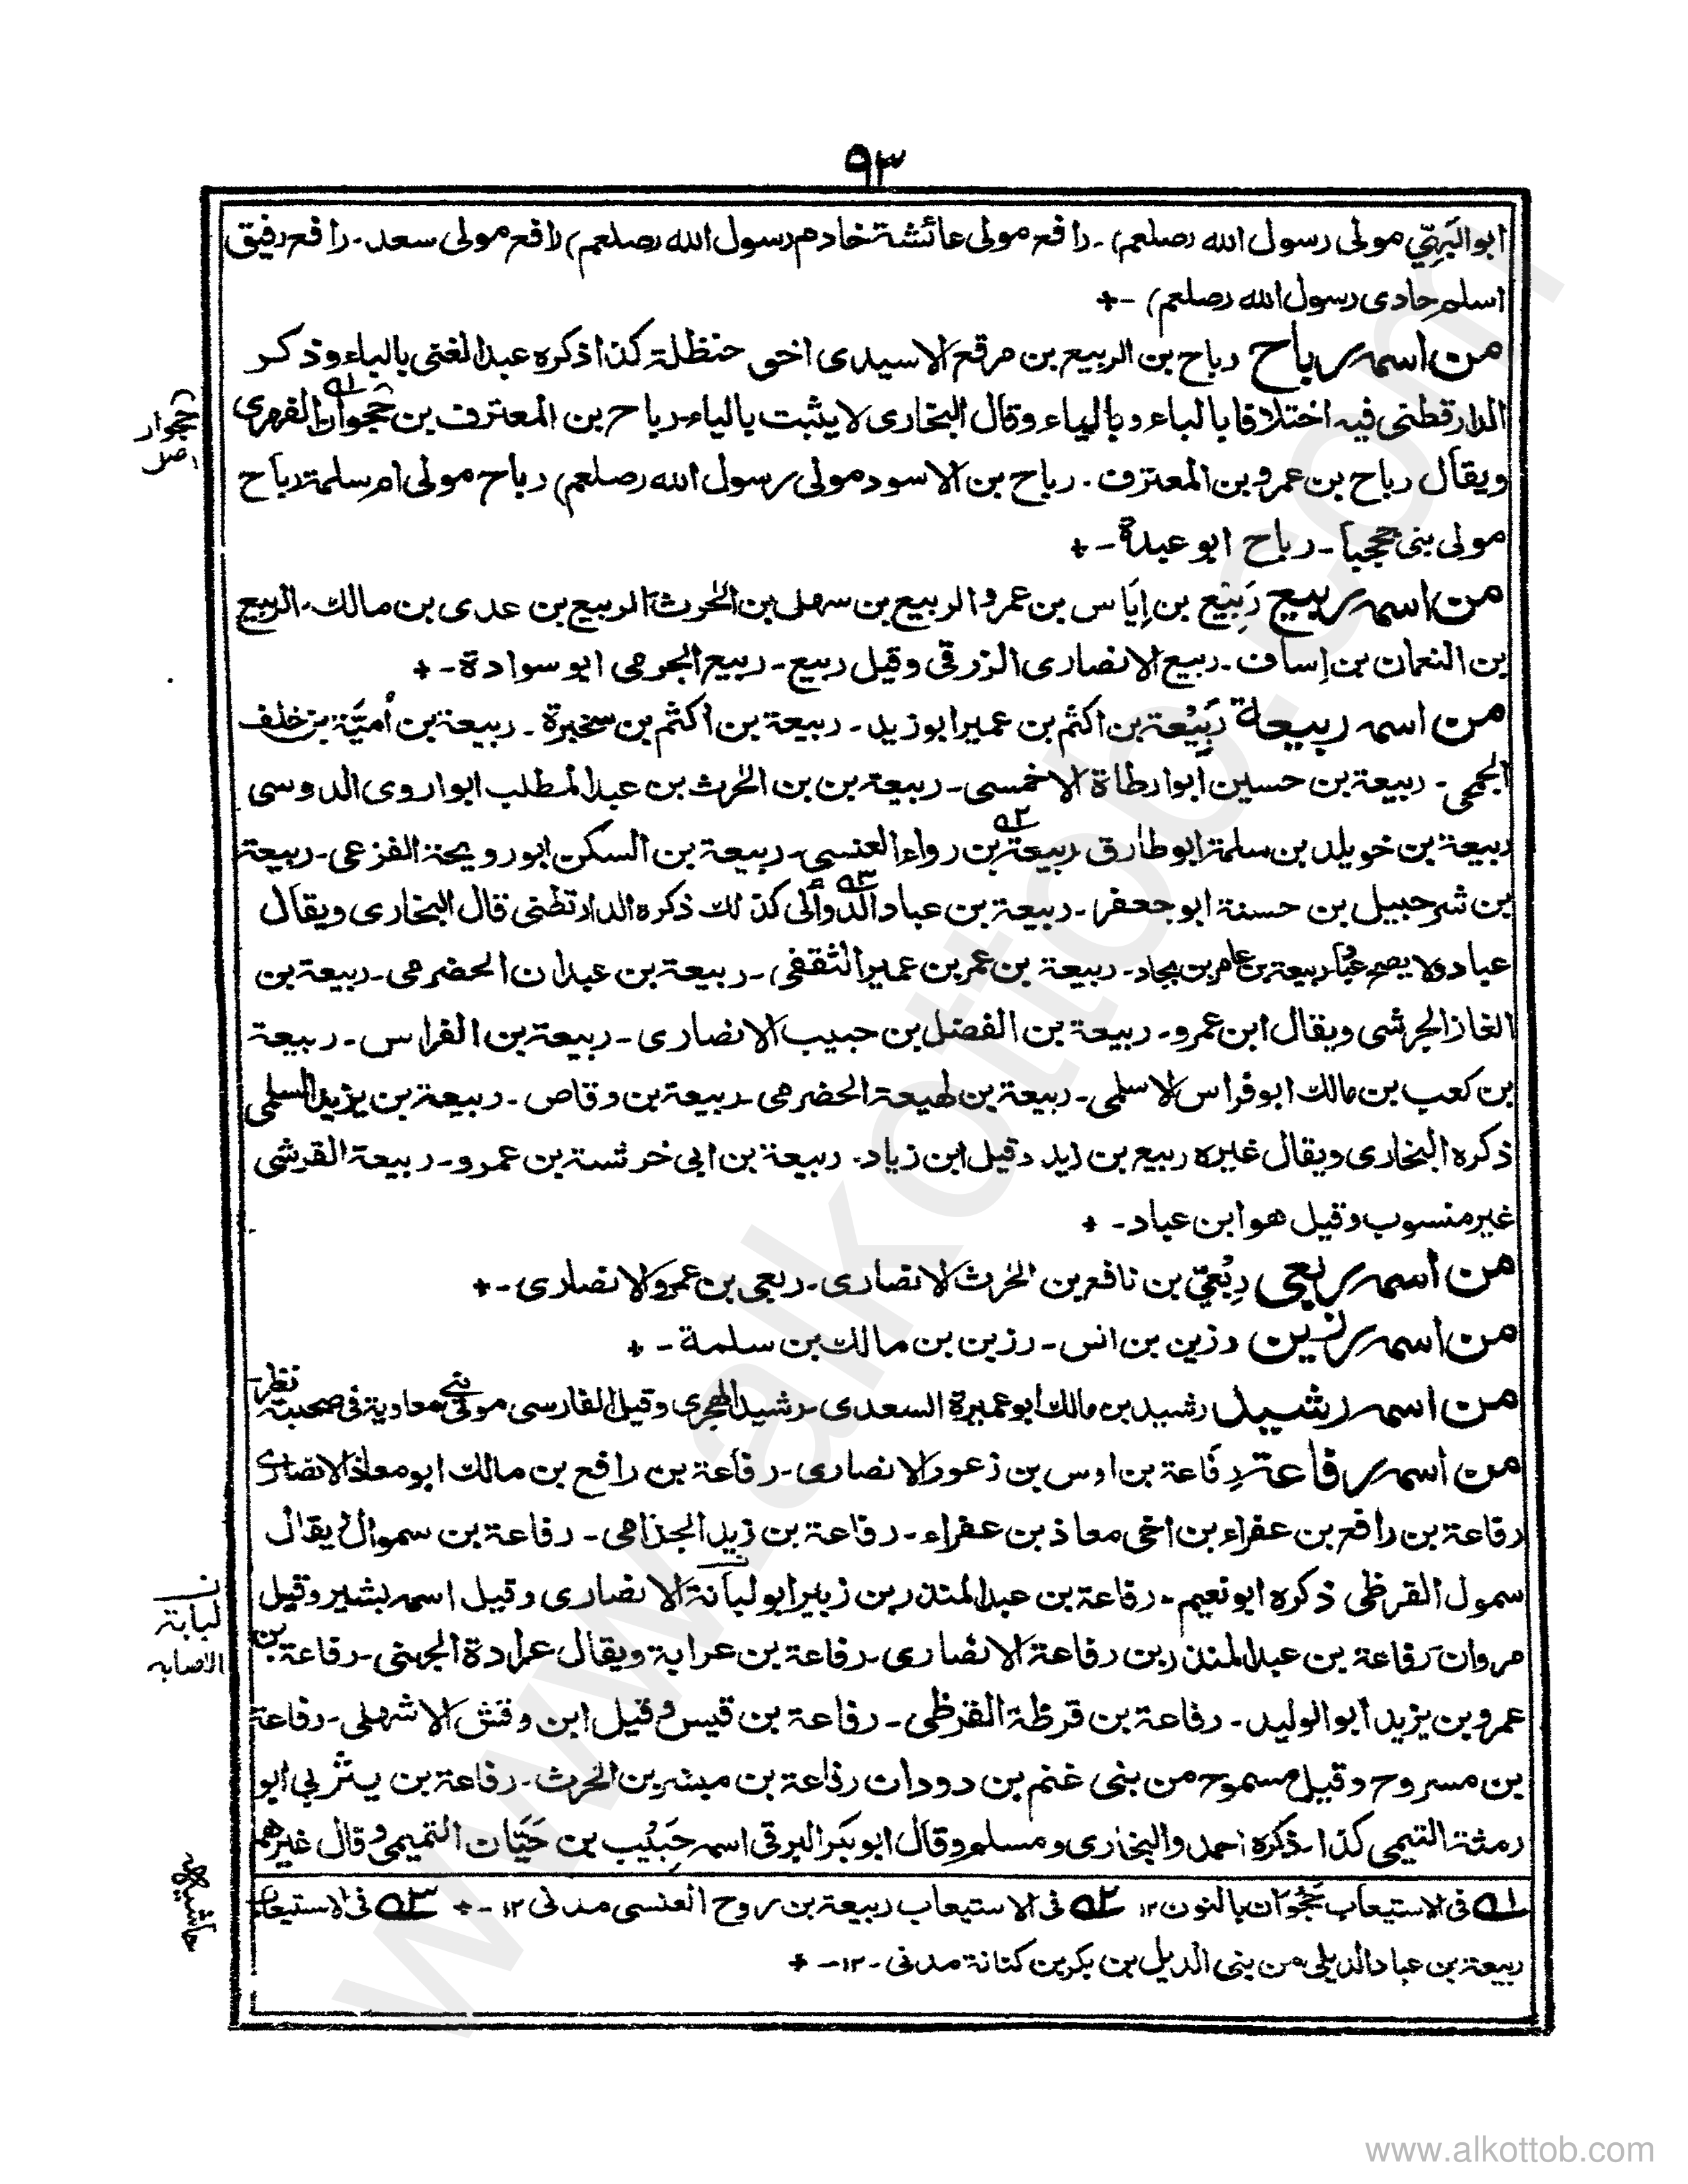 ٩٣
ابوالبَهِيّ مولى رسول الله (صلعم) ـ رافع مولى عائشة خادم رسول الله (صلعم) رافع مولى سعد ـ رافع رفيق
اسلم حادى رسول الله (صلعم) ـ+
من اسمه رباح رباح بن الربيع بن مرقع الاسيدى اخو حنظلة كذا ذكره عبد الغنى بالباء وذكر
الدارقطنى فيه اختلافا بالباء وبالياء وقال البخارى لا يثبت بالياء ـ رباح بن المعترف بن حجوان الفهرى
ويقال رباح بن عمرو بن المعترف ۰ رباح بن الاسود مولى رسول الله (صلعم) رباح مولى ام سلمة رباح
مولى بنى جحجبا ـ رباح ابو عبدة ـ+
من اسمه ربيع رَبِيْع بن اِيَاس بن عمرو الربيع بن سهل بن الحٰرث الربيع بن عدى بن مالك ـ الربيع
بن النعمان بن اِساف ـ ربيع الانصارى الزرقى وقيل ربيع ـ ربيع الجرمى ابو سوادة ـ+
من اسمه ربيعة رَبِيْعة بن اكثم بن عمير ابو زيد ـ ربيعة بن اكثم بن سخبرة ـ ربيعة بن اُميَّة بن خلف
الجمحى ـ ربيعة بن حسين ابو ارطاة الاخمسى ـ ربيعة بن بن الحٰرث بن عبد المطلب ابو اروى الدوسى
ربيعة بن خويلد بن سلمة ابو طارق ربيعة بن رواء العنسى ـ ربيعة بن السكن ابو رويحة الفزعى ـ ربيعة
بن شرحبيل بن حسنة ابو جعفر ـ ربيعة بن عباد الدوألى كذلك ذكره الدارقطنى قال البخارى ويقال
عباد ولا يصح عباد ربيعة بن عامر بن بجاد ـ ربيعة بن عمر بن عمير الثقفى ـ ربيعة بن عبدان الحضرمى ـ ربيعة بن
الغاز الجرشى ويقال ابن عمرو ـ ربيعة بن الفضل بن حبيب الانصارى ـ ربيعة بن الفراس ـ ربيعة
بن كعب بن مالك ابو فراس الاسلمى ـ ربيعة بن لهيعة الحضرمى ـ ربيعة بن وقاص ـ ربيعة بن يزيد السلمى
ذكره البخارى ويقال غيره ربيع بن زيد وقيل ابن زياد ـ ربيعة بن ابى خرشة بن عمرو ـ ربيعة القرشى
غير منسوب وقيل هو ابن عباد ـ +
من اسمه ربعى رِبْعيّ بن نافع بن الحٰرث الانصارى ـ ربعى بن عمرو الانصارى ـ+
من اسمه رزين رزين بن انس ـ رزين بن مالك بن سلمة ـ +
من اسمه رشيد رشيد بن مالك ابو عميرة السعدى ـ رشيد الهجرى وقيل الفارسى مولى بنى معاوية فى صحبته نظر
من اسمه رفاعة رِفَاعة بن اوس بن زعور الانصارى ـ رفاعة بن رافع بن مالك ابو معاذ الانصارى
رفاعة بن رافع بن عفراء بن اخى معاذ بن عفراء ـ رفاعة بن زيد الجذامى ـ رفاعة بن سموال يقال
سمول القرظى ذكره ابو نعيم ـ رفاعة بن عبد المنذر بن زبير ابو لبانة الانصارى وقيل اسمه بشير وقيل
مروان رفاعة بن عبد المنذر بن رفاعة الانصارى ـ رفاعة بن عرابة ويقال عرادة الجهنى ـ رفاعة بن
عمرو بن يزيد ابو الوليد ـ رفاعة بن قرظة القرظى ـ رفاعة بن قيس وقيل ابن وقش الاشهلى ـ رفاعة
بن مسروح وقيل مسموح من بنى غنم بن دودان رفاعة بن مبشر بن الحٰرث ـ رفاعة بن يثربى ابو
رمثة التيمى كذا ـ ذكره احمد والبخارى ومسلم وقال ابو بكر البرقى اسمه حَبِيْب بن حَيَّان التميمى وقال غيرهم
ه١ فى الاستيعاب جَحْوَان بالنون ١٢ ه٢ فى الاستيعاب ربيعة بن روح العنسى مدنى ١٢ ـ+ ه٣ فى الاستيعاب
ربيعة بن عباد الديلى من بنى الديل بن بكر بن كنانة مدنى ـ ١٢ ـ+
حجوار
اصل
ن
لبابة
الاصابه
حاشيه
www.alkottob.com
www.alkottob.com